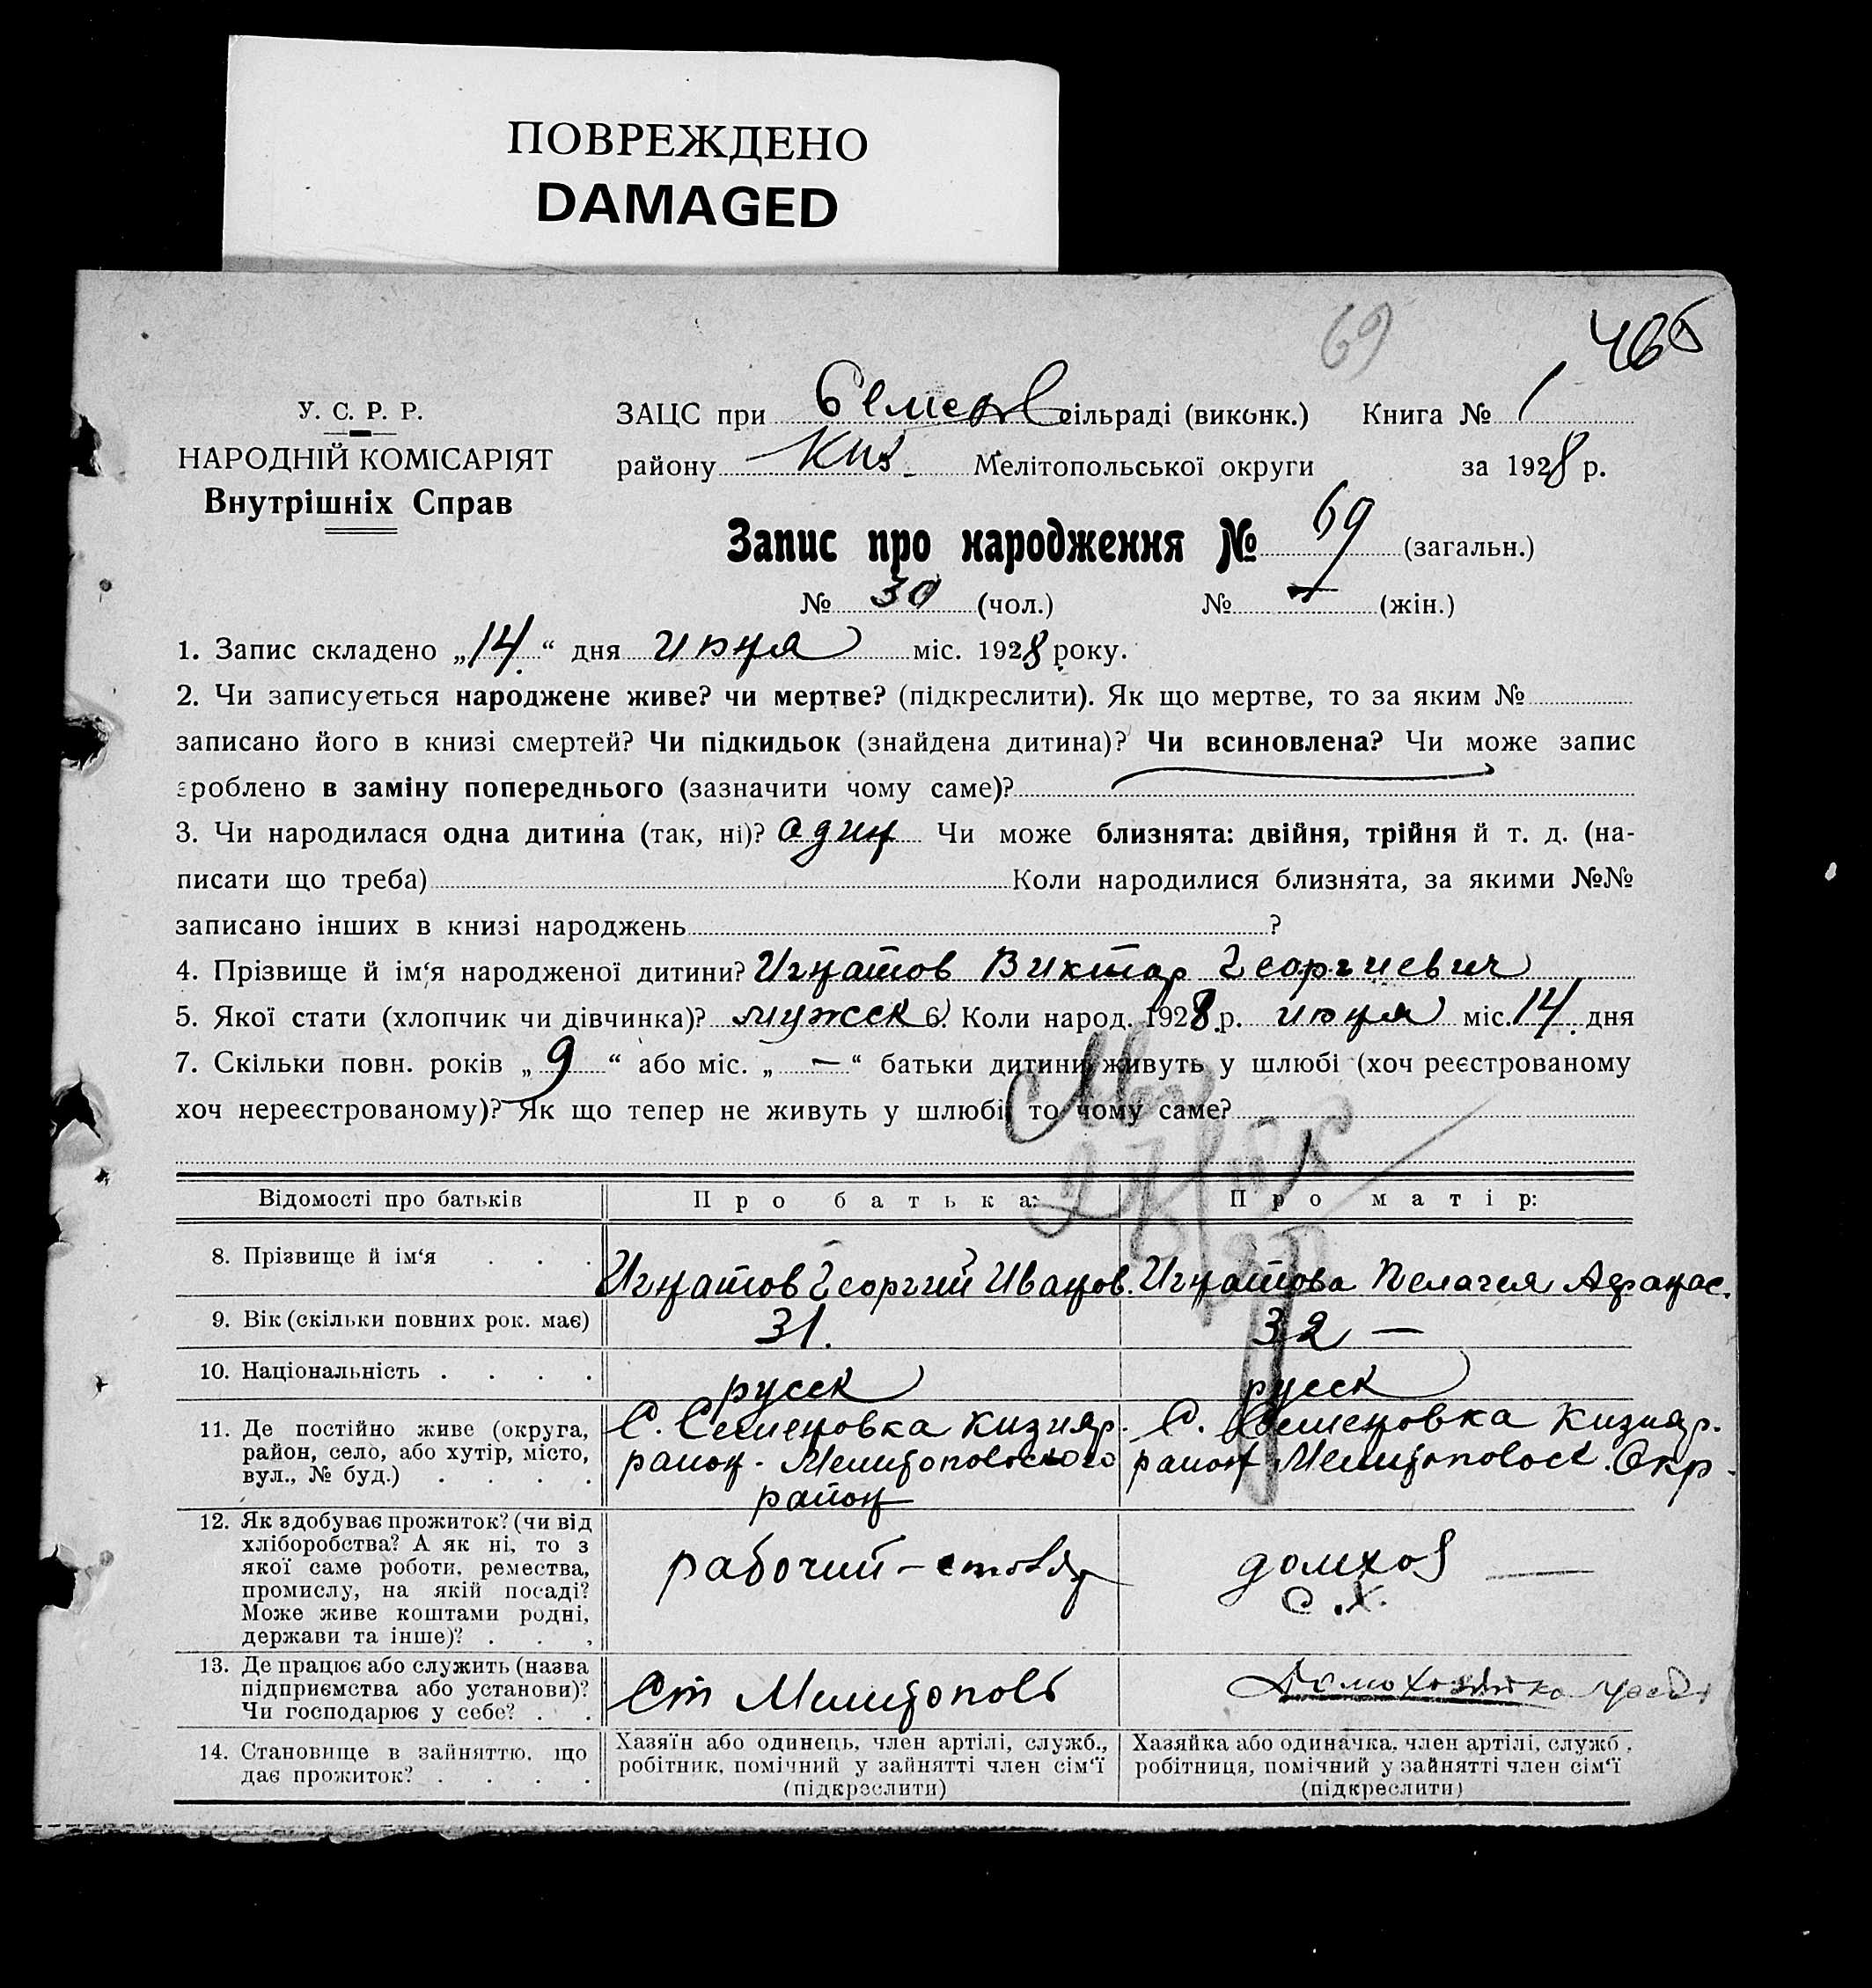 ПОВРЕЖДЕНО
DAMAGED
69
466
У. С. Р. Р.
НАРОДНІЙ КОМІСАРІЯТ
Внутрішніх Справ
ЗАЦС при Семенов сільраді (виконк.) Книга № 1
району Киз. Мелітопольської округи за 1928 р.
Запис про народження № 69 (загальн.)
№ 30 (чол.) № — (жін.)
1. Запис складено „14“ дня июня міс. 1928 року.
2. Чи записується народжене живе? чи мертве? (підкреслити). Як що мертве, то за яким №
записано його в книзі смертей? Чи підкидьок (знайдена дитина)? Чи всиновлена? Чи може запис
зроблено в заміну попереднього (зазначити чому саме)?
3. Чи народилася одна дитина (так, ні)? один Чи може близнята: двійня, трійня й т. д. (на-
писати що треба) Коли народилися близнята, за якими №№
записано інших в книзі народжень ?
4. Прізвище й ім‘я народженої дитини? Игнатов Виктор Георгиевич
5. Якої стати (хлопчик чи дівчинка)? мужск 6. Коли народ. 1928 р. июня міс. 14 дня
7. Скільки повн. років „9“ або міс. „—“ батьки дитини живуть у шлюбі (хоч реєстрованому
хоч нереєстрованому)? Як що тепер не живуть у шлюбі, то чому саме?
Відомості про батьків Про батька: Про матір:
8. Прізвище й ім‘я . . . Игнатов Георгий Иванов. Игнатова Пелагея Афанас.
9. Вік (скільки повних рок. має) 31. 32 —
10. Національність . . . . русск русск
11. Де постійно живе (округа, С. Семеновка Кизияр. С. Семеновка Кизияр.
район, село, або хутір, місто, район. Мелитопольского район Мелитопольск. Окр.
вул., № буд.) . . . . район
12. Як здобуває прожиток? (чи від
хліборобства? А як ні, то з
якої саме роботи, ремества, рабочий – столяр домхоз —
промислу, на якій посаді? С.Х.
Може живе коштами родні,
держави та інше)? . . .
13. Де працює або служить (назва
підприємства або установи)? Ст Мелитополь Домохозяйка
Чи господарює у себе? . .
14. Становище в зайняттю, що Хазяїн або одинець, член артілі, служб., Хазяйка або одиначка, член артілі, служб.,
дає прожиток? . . . . робітник, помічний у зайнятті член сім‘ї робітниця, помічний у зайнятті член сім‘ї
(підкреслити) (підкреслити)